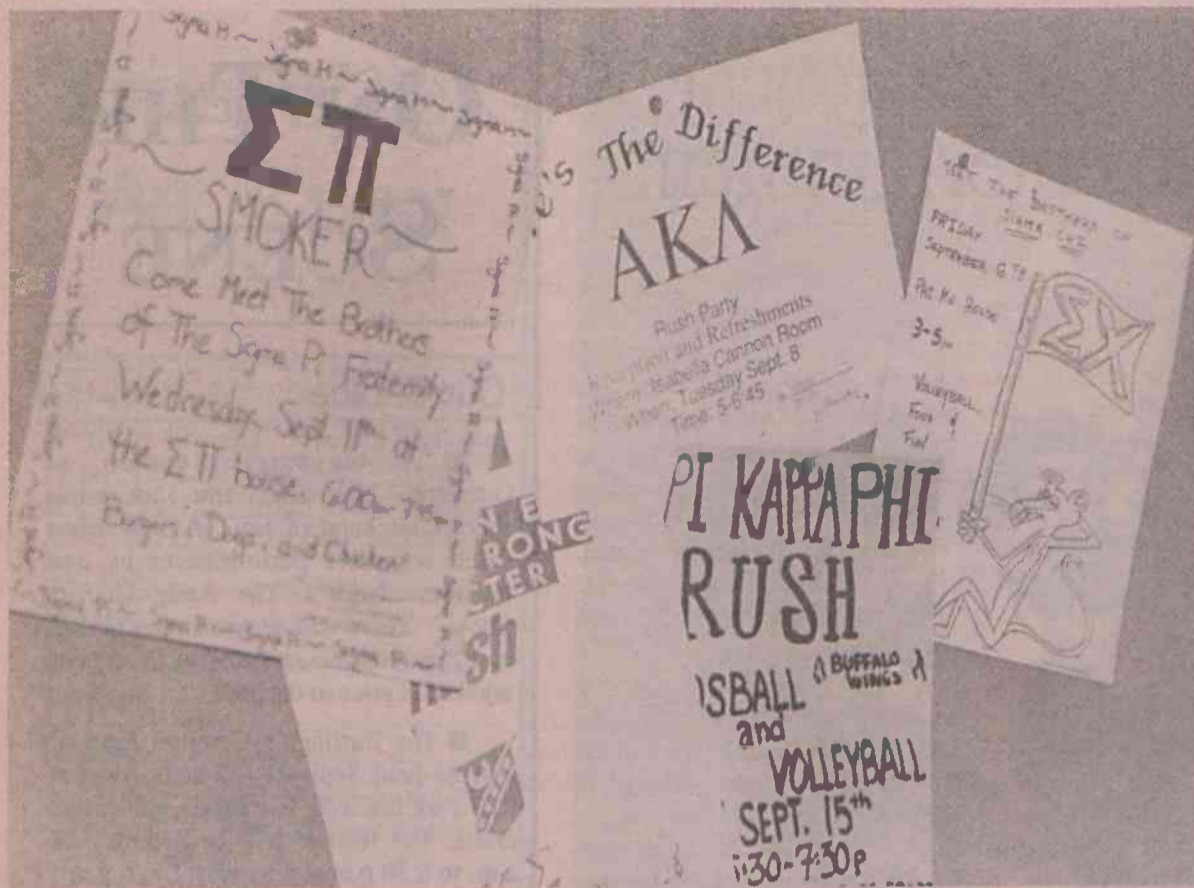 Sigma Pi ~ Sigma Pi ~ Sigma Pi ~ Sigma Pi ~
ΣΠ
~ SMOKER ~
Come Meet The Brothers
of The Sigma Pi Fraternity
Wednesday, Sept. 11th at
the ΣΠ house, 6:00
Burgers, Dogs, and Chicken
Sigma Pi ~ Sigma Pi ~ Sigma Pi ~
The Difference
ΑΚΛ
Rush Party
Reception and Refreshments
Where: Isabella Cannon Room
When: Tuesday Sept. 8
Time: 5-6:45
THE BROTHERS OF
SIGMA CHI
FRIDAY
SEPTEMBER
HOUSE
3-5
VOLLEYBALL
FOOD &
FUN
ΣΧ
RONG
TER
sh
PI KAPPA PHI
RUSH
SBALL
BUFFALO
WINGS
and
VOLLEYBALL
SEPT. 15th
:30-7:30p